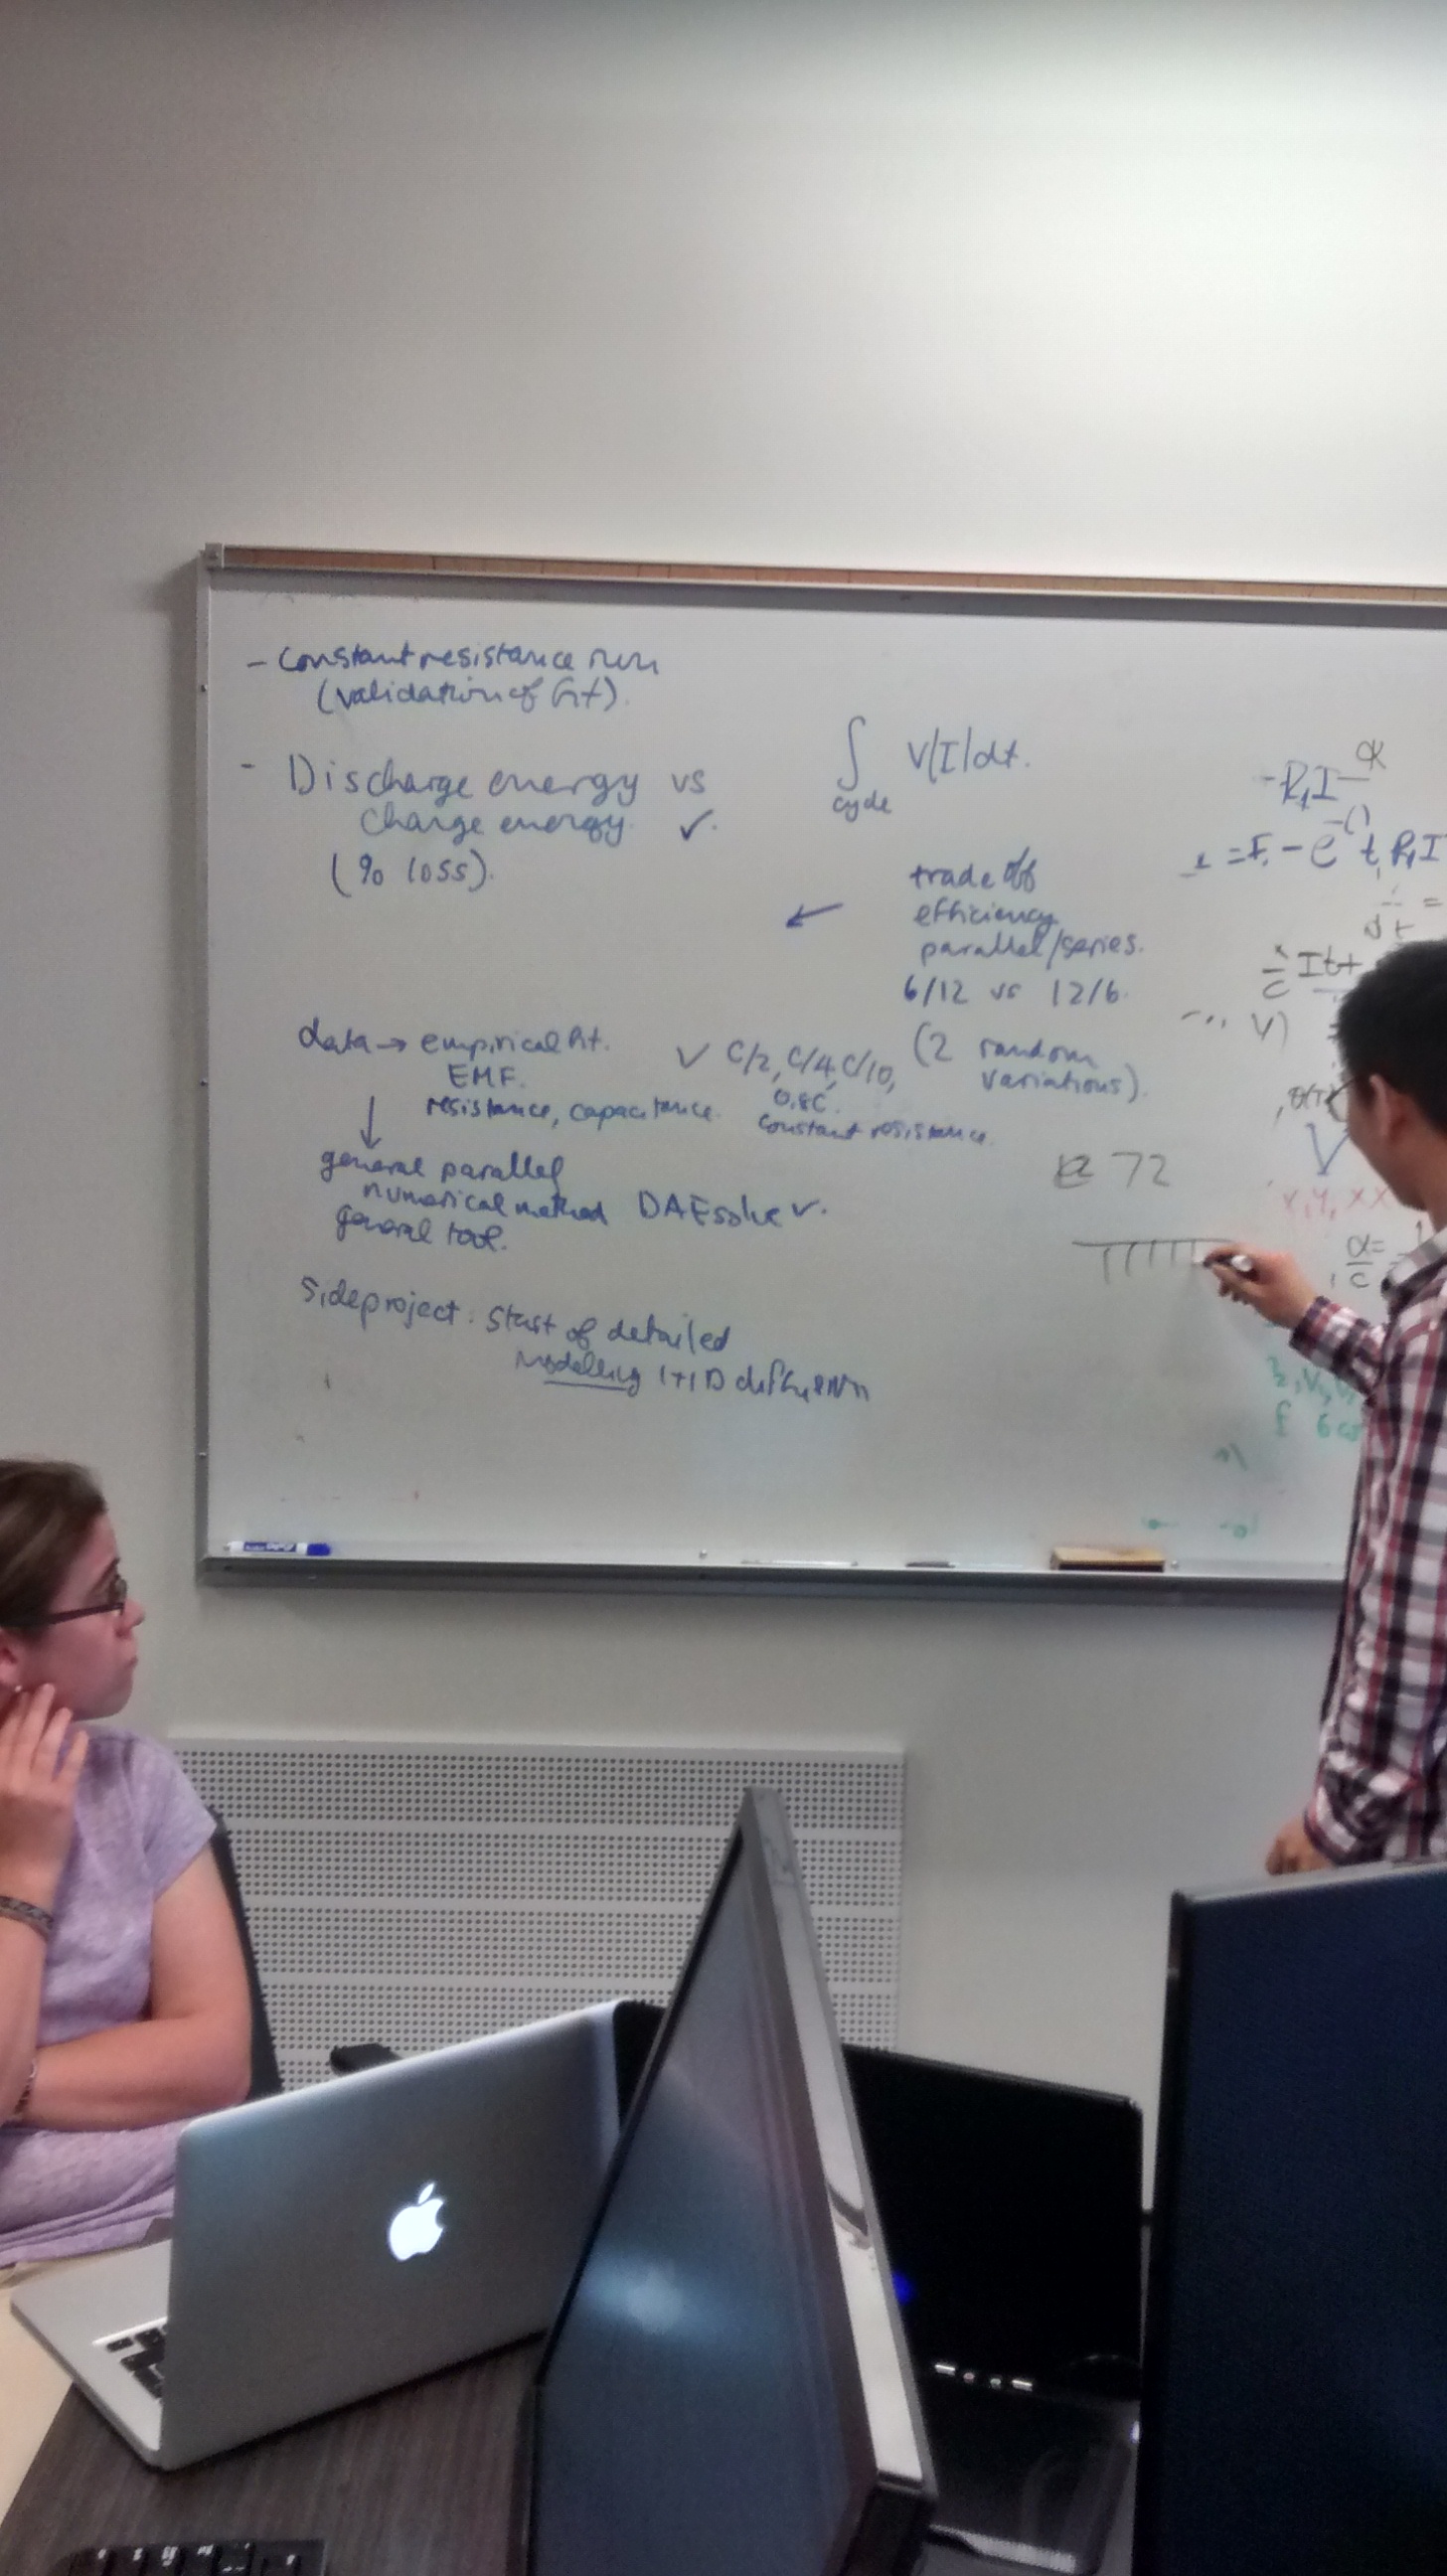 - constant resistance run
(validation of fit).
- Discharge energy vs
charge energy. ✓.
(% loss).
∫ V|I|dt.
cycle
trade off
efficiency
parallel/series.
6/12 vs 12/6.
(2 random
variations).
←
data → empirical fit.
EMF.
resistance, capacitance.
✓ C/2, C/4, C/10,
0.8C.
constant resistance.
↓
general parallel
numerical method DAEsolve ✓.
general tool.
Sideproject: Start of detailed
modelling 1+1D diffusion
72
-R₁I
It+
V)
V
α/c =